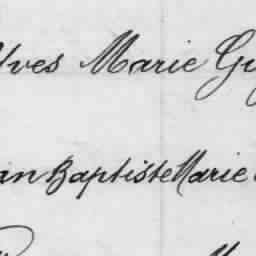 Yves Marie Gu
an Baptiste Marie